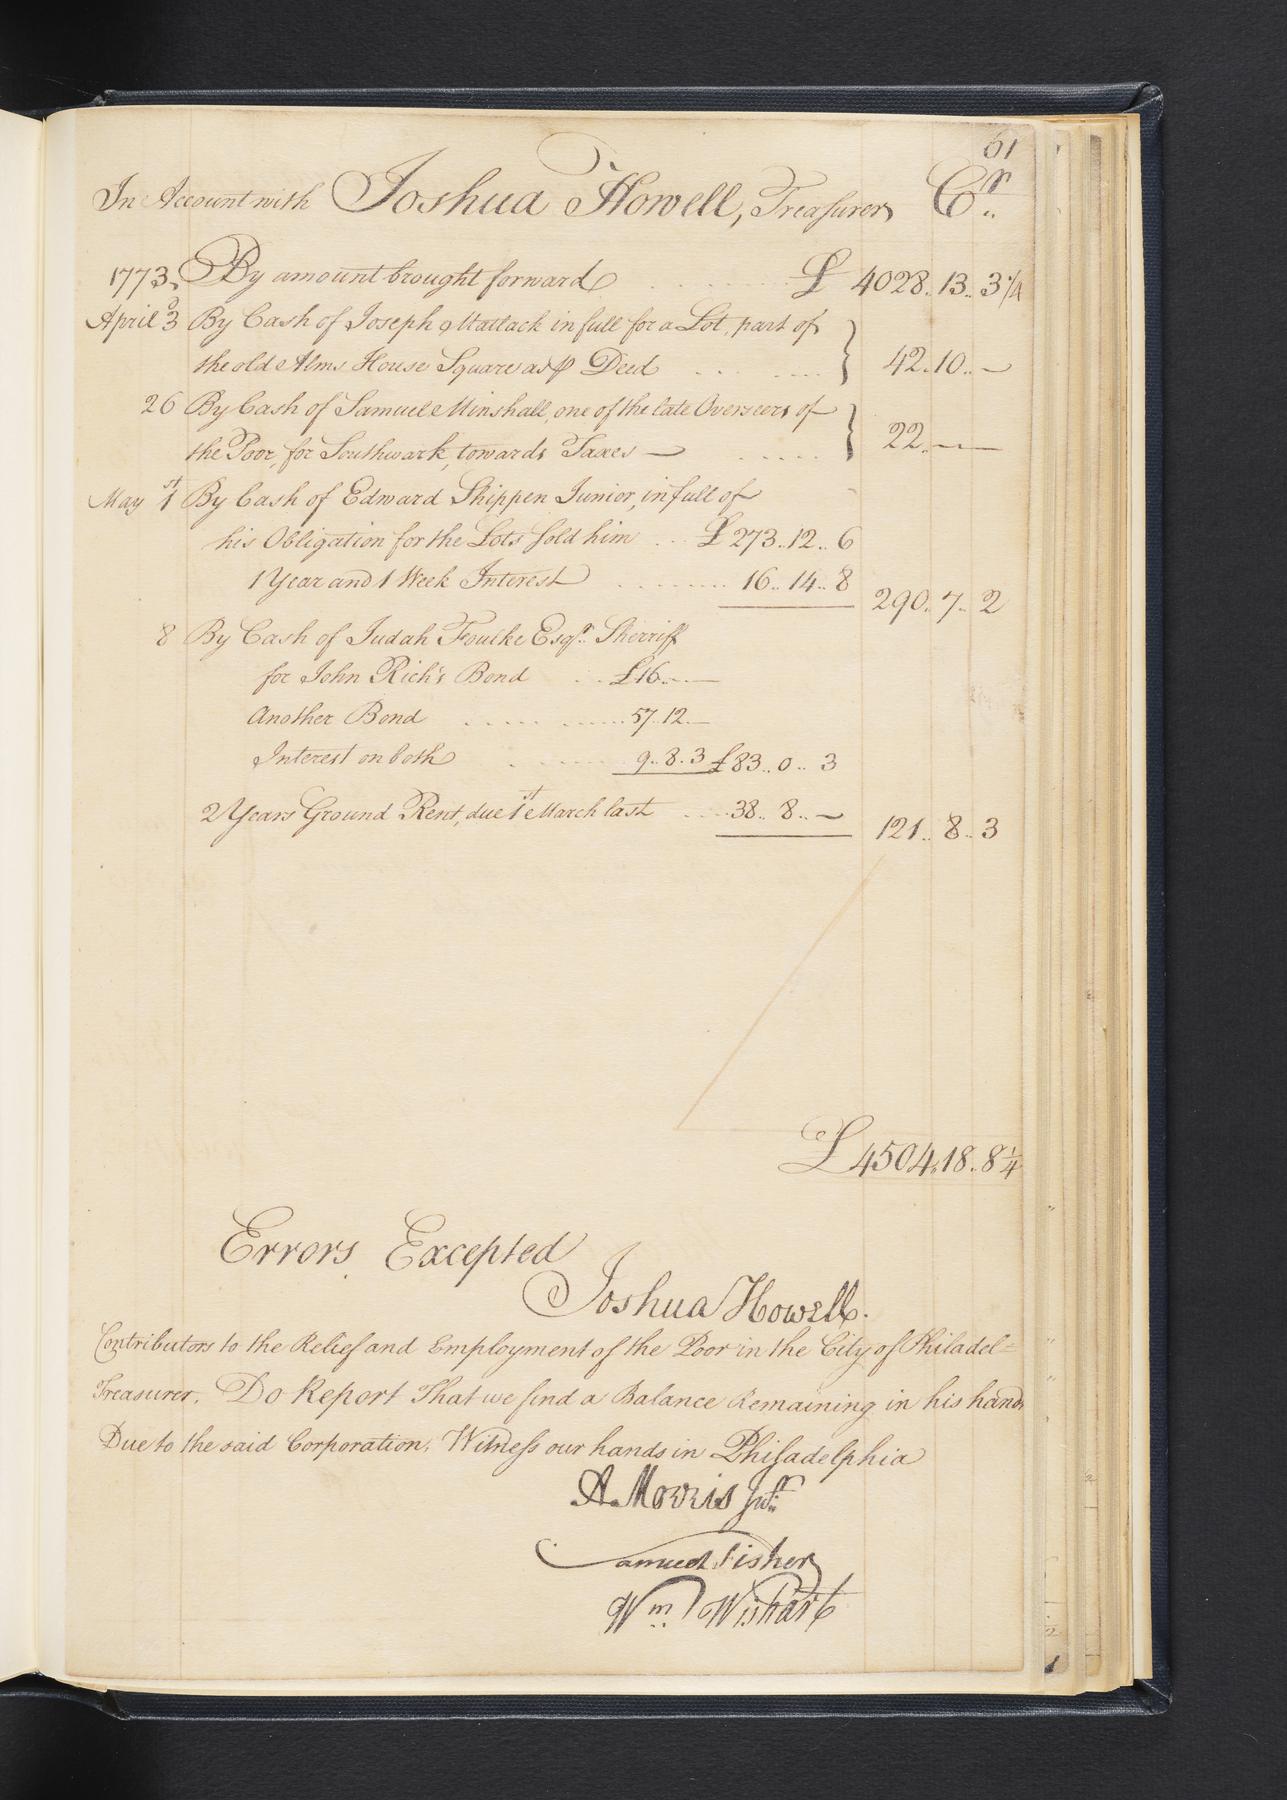 61
In Account with Joshua Howell, Treasurer Cr..
1773, By amount brought forward £ 4028..13..3 1/4
April 3d By Cash of Joseph Matlack in full for a Lot, part of
the old Alms House Square as ⅌ Deed 42..10..—
26 By Cash of Samuel Minshall, one of the late Overseers of
the Poor, for Southwark, towards Taxes — 22..——
May 1st By Cash of Edward Shippen Junior, in full of
his Obligation for the Lots sold him £273..12..6
1 Year and 1 Week Interest 16..14..8 290..7..2
8 By Cash of Judah Foulke Esqr. Sherriff
for John Rich's Bond £16..—
Another Bond 57..12..—
Interest on both 9..8..3 £83..0..3
2 Years Ground Rent, due 1st March last 38..8..— 121..8..3
£4504..18..8 1/4
Errors Excepted
Joshua Howell.
Contributors to the Relief and Employment of the Poor in the City of Philadel=
Treasurer. Do Report That we find a Balance Remaining in his hands
Due to the said Corporation. Witness our hands in Philadelphia
A. Morris Junr.
Samuel Fisher
Wm. Wishart